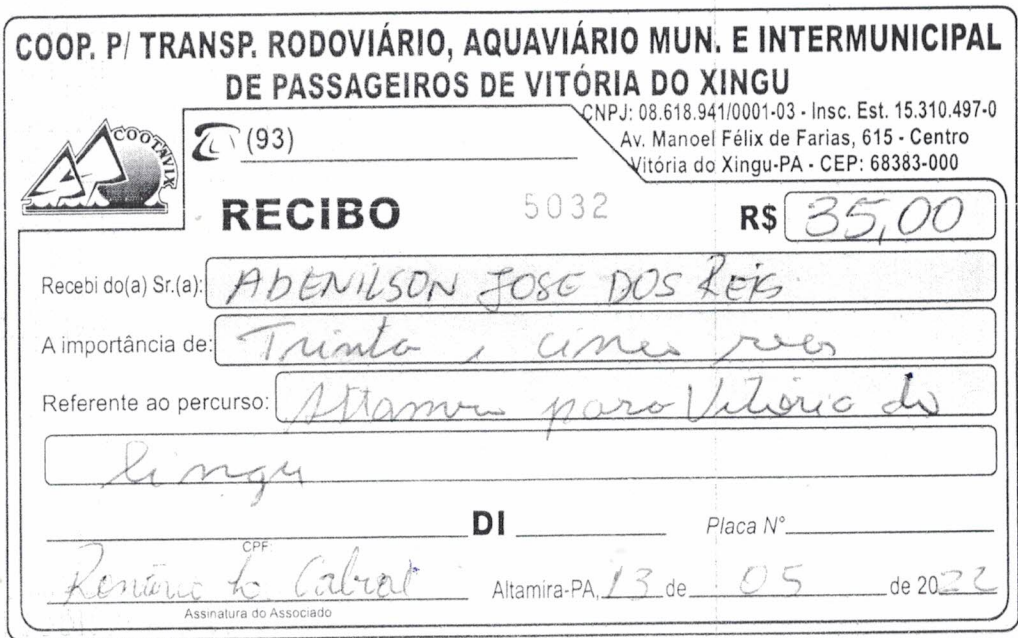 COOP. P/ TRANSP. RODOVIÁRIO, AQUAVIÁRIO MUN. E INTERMUNICIPAL
DE PASSAGEIROS DE VITÓRIA DO XINGU
CNPJ: 08.618.941/0001-03 - Insc. Est. 15.310.497-0
Av. Manoel Félix de Farias, 615 - Centro
Vitória do Xingu-PA - CEP: 68383-000
COOTAVIX
(93)
RECIBO 5032 R$ 35,00
Recebi do(a) Sr.(a): ADENILSON JOSE DOS REIS
A importância de: Trinta e cinco reais
Referente ao percurso: Altamira para Vitória do
Xingu
DI Placa Nº
CPF:
Cabral Altamira-PA, 13 de 05 de 2022
Assinatura do Associado